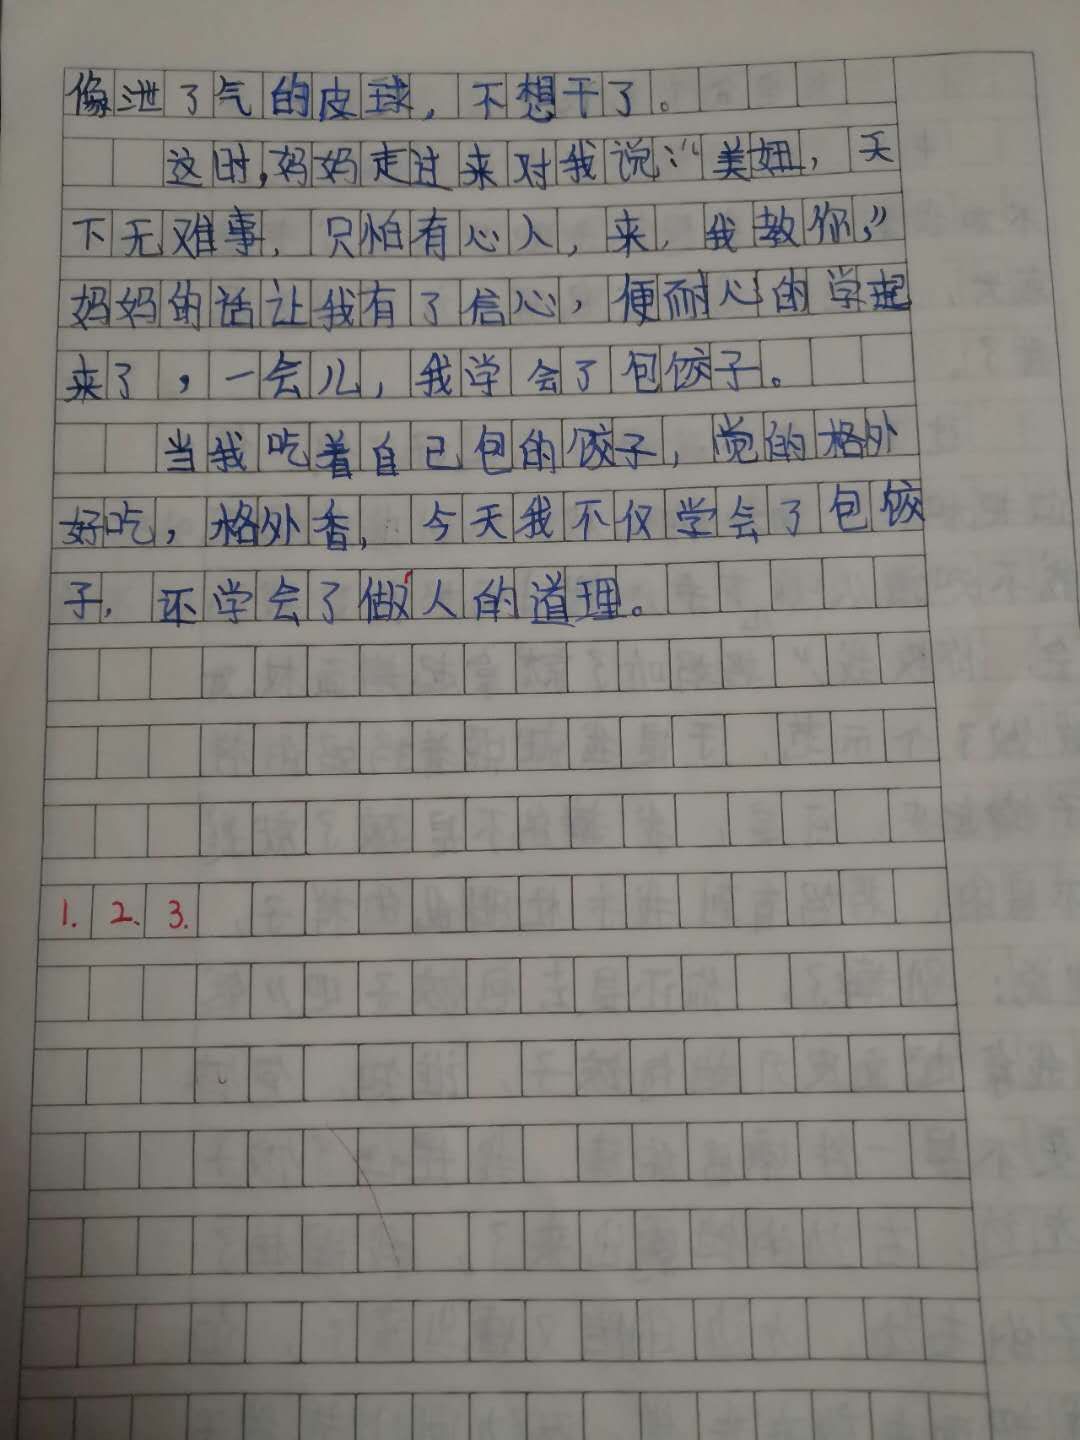 像泄了气的皮球，不想干了。
这时，妈妈走过来对我说：“美妞，天
下无难事，只怕有心人，来，我教你，”
妈妈的话让我有了信心，便耐心的学起
来了，一会儿，我学会了包饺子。
当我吃着自己包的饺子，觉的格外
好吃，格外香，今天我不仅学会了包饺
子，还学会了做人的道理。
1. 2. 3.